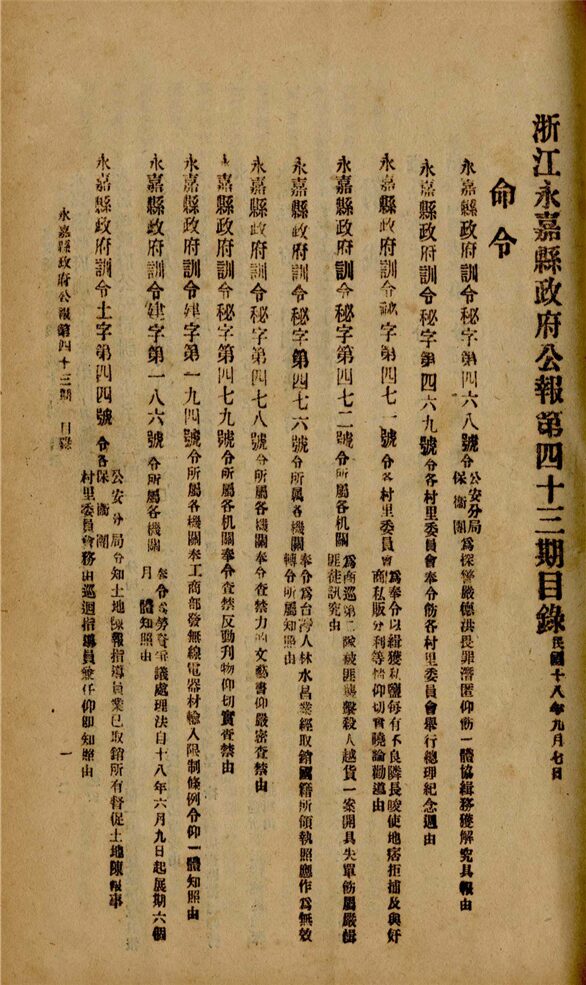 浙江永嘉縣政府公報第四十三期目錄 民國十八年九月七日
命令
永嘉縣政府訓令秘字第四六八號令公安分局保衛團為探警嚴德洪畏罪潛匿仰飭一體協緝務獲解究具報由
永嘉縣政府訓令秘字第四六九號令各村里委員會奉令飭各村里委員會舉行總理紀念週由
永嘉縣政府訓令秘字第四七一號令各村里委員會為奉令以緝獲私鹽每有不良隣長唆使地痞拒捕及與奸
商私販分利等情仰切實曉諭勸導由
永嘉縣政府訓令秘字第四七二號令所屬各機關為商巡第二隊被匪襲擊殺人越貨一案開具失單飭屬嚴緝
匪徒訊究由
永嘉縣政府訓令秘字第四七六號令所屬各機關奉令為台灣人林水昌業經取銷國籍所領執照應作為無效
轉令所屬知照由
永嘉縣政府訓令秘字第四七八號令所屬各機關奉令查禁力的文藝書仰嚴密查禁由
永嘉縣政府訓令秘字第四七九號令所屬各机關奉令查禁反動刊物仰切實查禁由
永嘉縣政府訓令建字第一九四號令所屬各機關奉工商部發無線電器材輸入限制條例令仰一體知照由
永嘉縣政府訓令建字第一八六號令所屬各機關奉令為勞資爭議處理法自十八年六月九日起展期六個
月 體知照由
永嘉縣政府訓令土字第四四號令各公安分局保衛團村里委員會令知土地陳報指導員業已取銷所有督促土地陳報事
務由巡迴指導員兼任仰即知照由
永嘉縣政府公報第四十三期 目錄 一